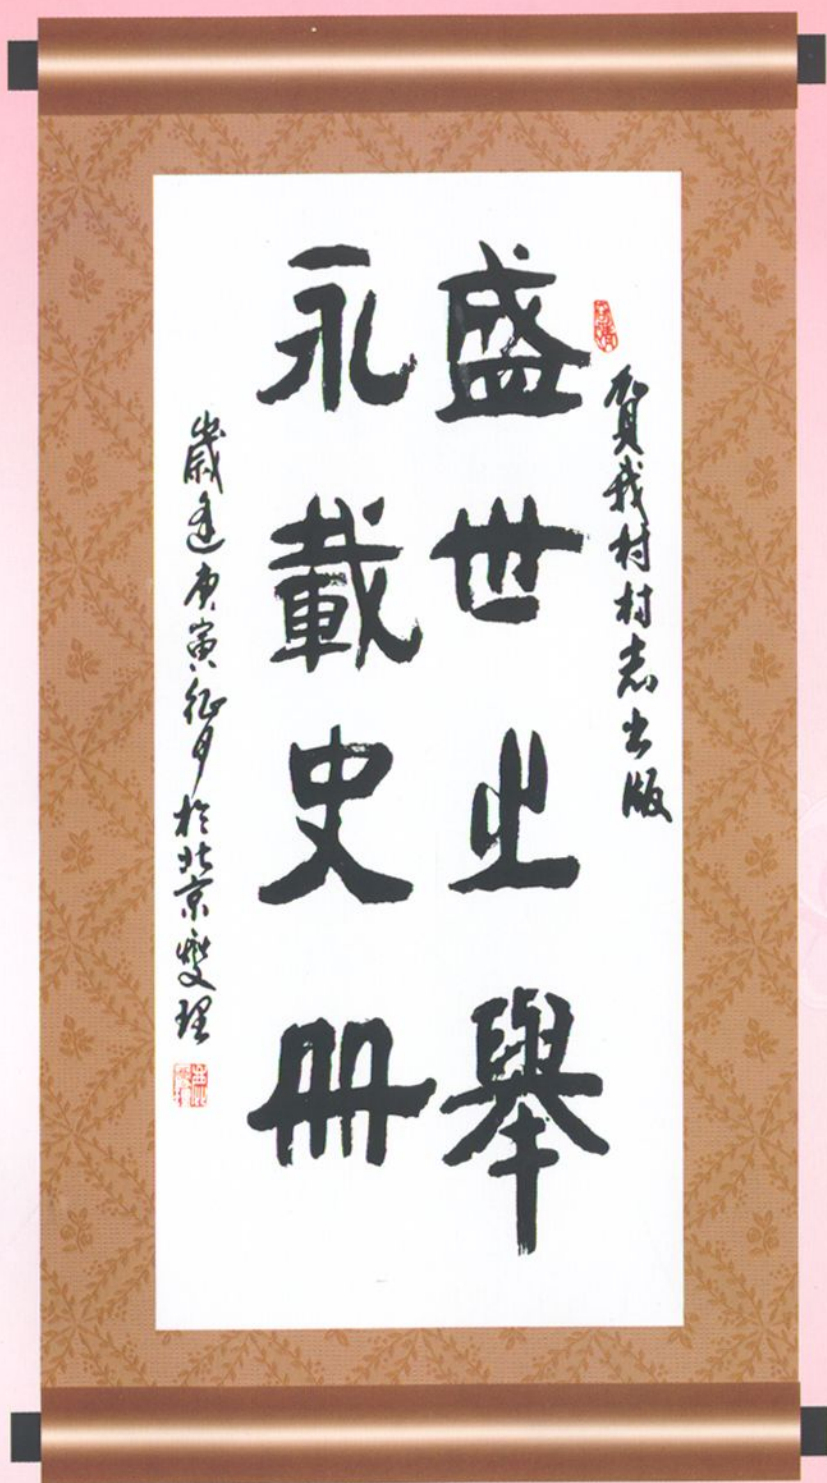 賀我村村志出版
盛世之舉
永載史冊
歲逢庚寅征月於北京燮理